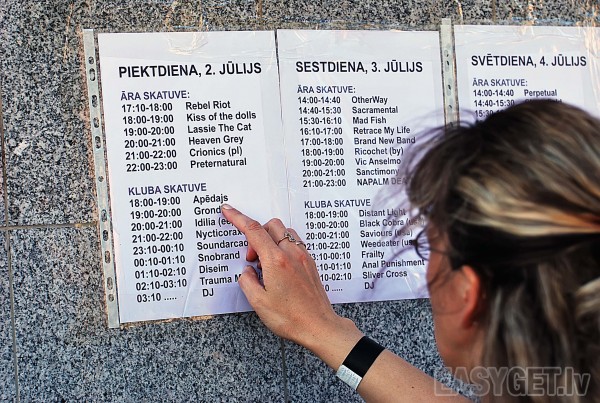 PIEKTDIENA, 2. JŪLIJS
ĀRA SKATUVE:
17:10-18:00 Rebel Riot
18:00-19:00 Kiss of the dolls
19:00-20:00 Lassie The Cat
20:00-21:00 Heaven Grey
21:00-22:00 Crionics (pl)
22:00-23:00 Preternatural
KLUBA SKATUVE
18:00-19:00 Apēdājs
19:00-20:00
20:00-21:00 Idilia
21:00-22:00
23:10-00:10 Soundarcade
00:10-01:10 Snobrand
01:10-02:10 Diseim
02:10-03:10 Trauma
03:10 ..... DJ
SESTDIENA, 3. JŪLIJS
ĀRA SKATUVE:
14:00-14:40 OtherWay
14:40-15:30 Sacramental
15:30-16:10 Mad Fish
16:10-17:00 Retrace My Life
17:00-18:00 Brand New Band
18:00-19:00 Ricochet (by)
19:00-20:00 Vic Anselmo
20:00-21:00
21:00-23:00 NAPALM
KLUBA SKATUVE:
18:00-19:00 Distant Light
19:00-20:00 Black Cobra
20:00-21:00 Saviours
21:00-22:00 Weedeater
23:10-00:10 Frailty
00:10-01:10 Anal Punishment
01:10-02:10 Sliver Cross
DJ
SVĒTDIENA, 4. JŪL
ĀRA SKATUVE:
14:00-14:40 Perpetual
14:40-15:30
EASYGET.lv